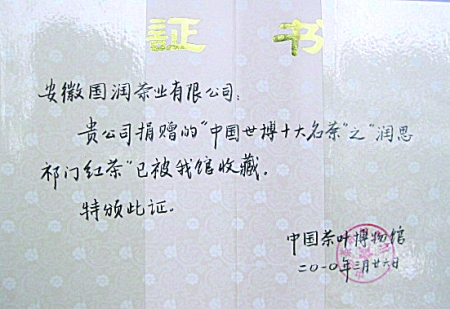 证书
安徽国润茶业有限公司：
贵公司捐赠的“中国世博十大名茶”之“润思
祁门红茶”已被我馆收藏。
特颁此证。
中国茶叶博物馆
二〇一〇年三月廿六日